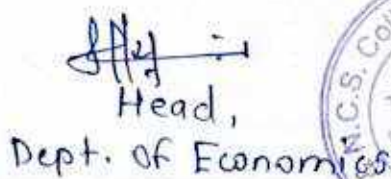 Head,
Dept. of Economics
M.C.S. Co